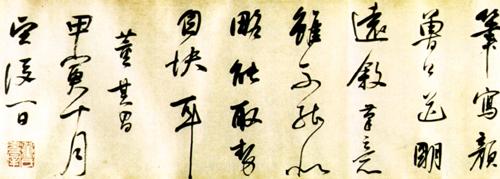 筆寫顏
魯公送明
遠敘意
雖不能似
略能取勢
自快耳
董其昌
甲寅十月
望後一日